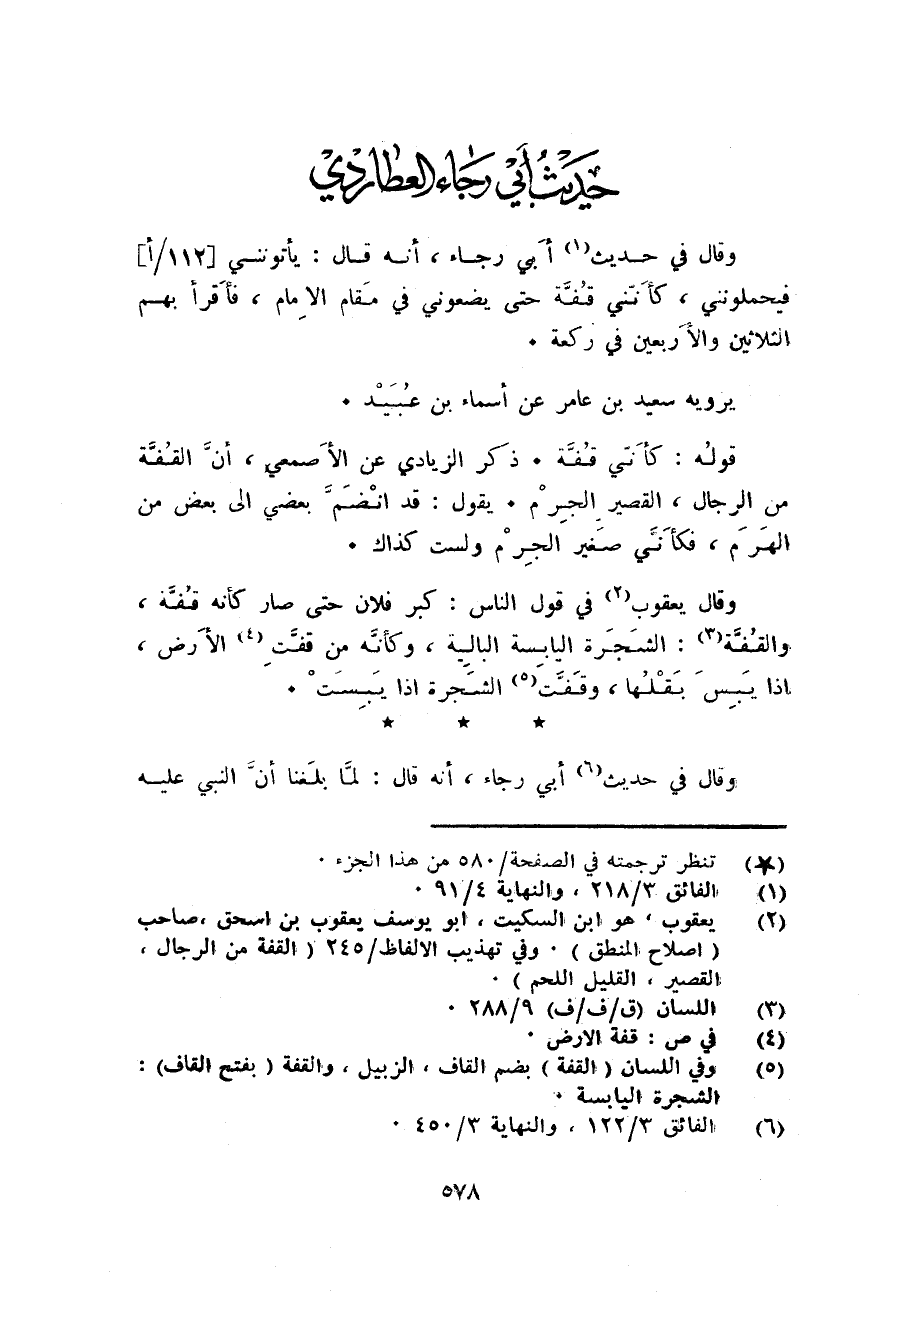 حديث أبي رجاء العطاردي
وقال في حديث(١) أَبي رجاء ، أنه قال : يأتونني [١١٢/أ]
فيحملونني ، كأَنّني قُفَّة حتى يضعوني في مَقام الاِمام ، فأَقرأ بهم
الثلاثين والأَربعين في ركعة ٠
يرويه سعيد بن عامر عن أسماء بن عُبَيْد ٠
قولُه : كأَنّي قُفَّة ٠ ذكَر الزيادي عن الأَصمعي ، أنَّ القُفَّة
من الرجال ، القصير الجِرْم ٠ يقول : قد انْضَمَّ بعضي الى بعض من
الهَرَم ، فكأَنَّي صَغير الجِرْم ولست كذاك ٠
وقال يعقوب(٢) في قول الناس : كبر فلان حتى صار كأنه قُفَّة ،
والقُفَّة(٣) : الشَجَرة اليابِسة البالِية ، وكأنَّه من قفَّتِ(٤) الأَرض ،
اذا يَبِسَ بَقْلُها ، وقَفَّت(٥) الشَجرة اذا يَبِسَتْ ٠
★ ★ ★
وقال في حديث(٦) أبي رجاء ، أنه قال : لمَّا بلغنا أنَّ النبي عليه
(★) تنظر ترجمته في الصفحة/٥٨٠ من هذا الجزء ٠
(١) الفائق ٢١٨/٣ ، والنهاية ٩١/٤ ٠
(٢) يعقوب ، هو ابن السكيت ، ابو يوسف يعقوب بن اسحق ،صاحب
( اصلاح المنطق ) ٠ وفي تهذيب الالفاظ/٢٤٥ ( القفة من الرجال ،
القصير ، القليل اللحم ) ٠
(٣) اللسان (ق/ف/ف) ٢٨٨/٩ ٠
(٤) في ص : قفة الارض ٠
(٥) وفي اللسان ( القفة ) بضم القاف ، الزبيل ، والقفة ( بفتح القاف) :
الشجرة اليابسة ٠
(٦) الفائق ١٢٢/٣ ، والنهاية ٤٥٠/٣ ٠
٥٧٨